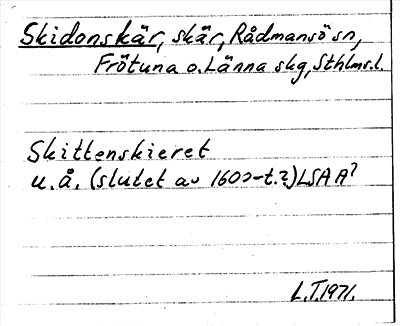 Skidonskär, skär, Rådmansö sn,
Frötuna o. Länna skg, Sthlms l.
Skittenskieret
u.å. (slutet av 1600-t.?) LSA A⁷
L.T. 1971.